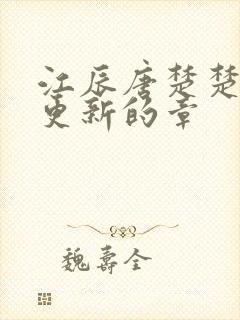 江辰唐楚楚
更新的章
魏寿全